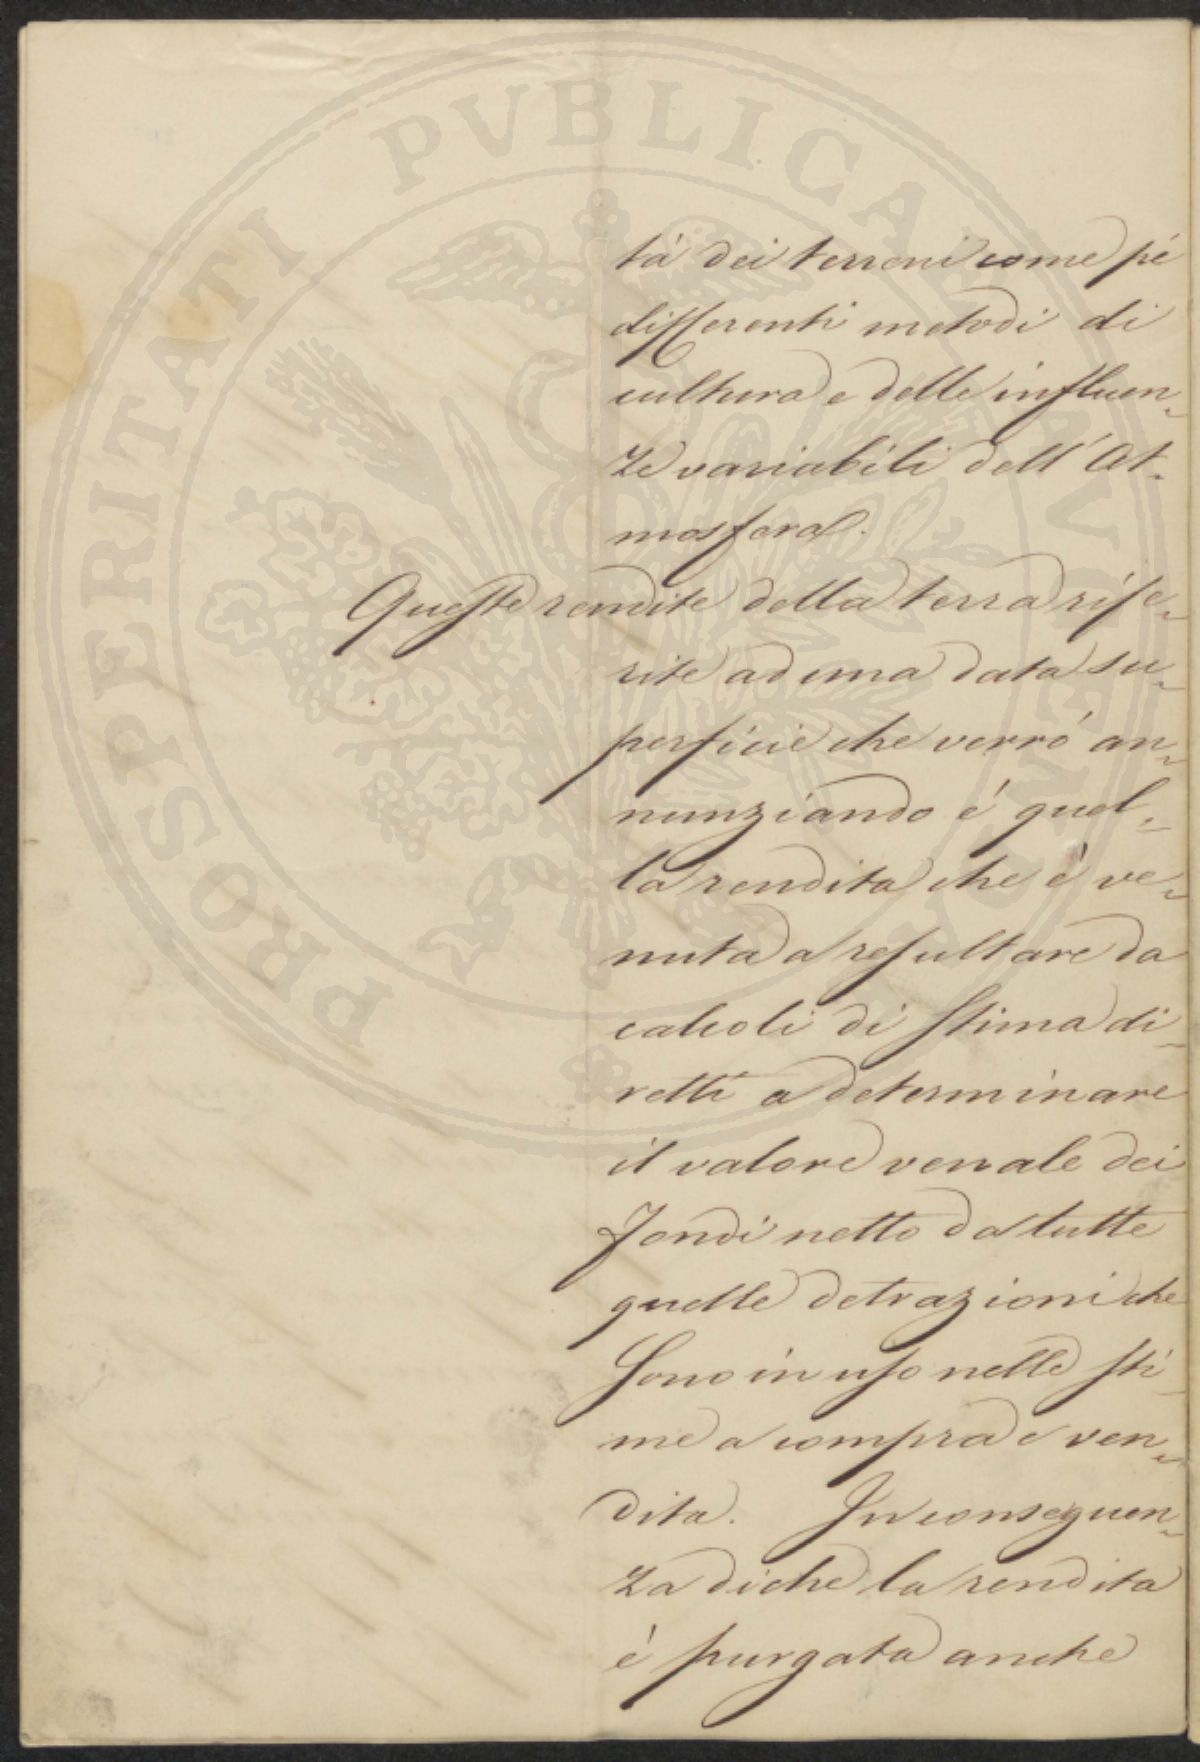 PROSPERITATI PVBLICAE AVGENDAE
tà dei terreni come pé
differenti metodi di
cultura e delle influen-
ze variabili dell'At-
mosfera.
Queste rendite della terra rife-
rite ad una data su-
perficie che verró an-
nunziando é quel-
la rendita che è ve-
nuta a resultare da
calcoli di stima di-
retti a determinare
il valore venale dei
fondi netto da tutte
quelle detrazioni che
sono in uso nelle sti-
me a compra e ven-
dita. In conseguen-
za di che la rendita
è purgata anche